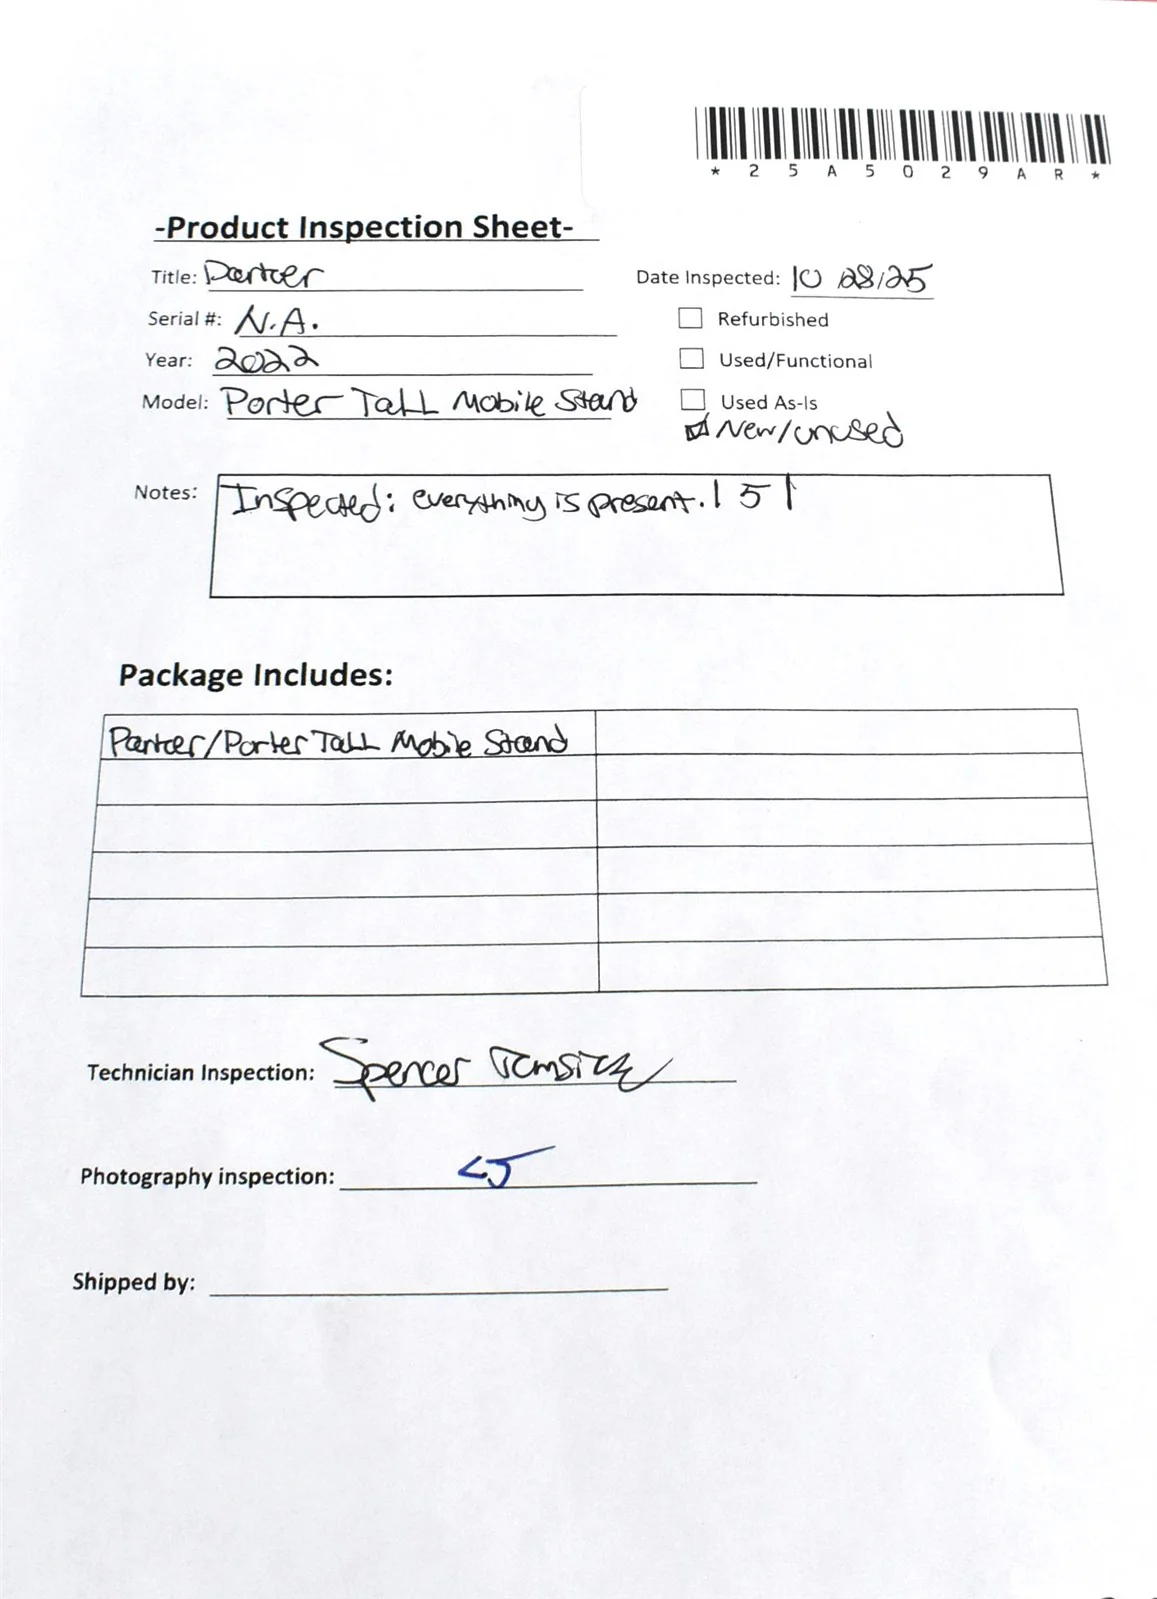 * 2 5 A 5 0 2 9 A R *
-Product Inspection Sheet-
Title: Partcer
Date Inspected: 10/28/25
Serial #: N.A.
Refurbished
Year: 2022
Used/Functional
Model: Porter Tall Mobile Stand
Used As-Is
New/unused
Notes: Inspected: everything is present. | 5 |
Package Includes:
Partcer/Porter Tall Mobile Stand
Technician Inspection: Spencer
Photography inspection: LJ
Shipped by: